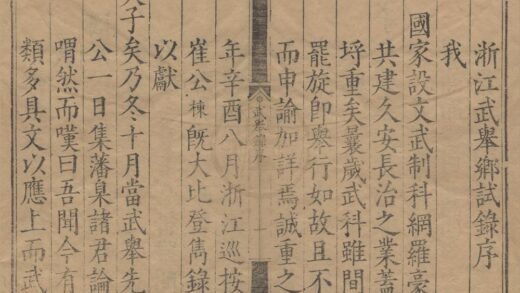 浙江武舉鄉試錄序
我
國家設文武制科網羅豪
共建久安長治之業蓋
埒重矣曩歲武科雖間
罷旋卽舉行如故且不
而申諭加詳焉誠重之
武舉錄序 一
年辛酉八月浙江巡按
崔公棟旣大比登雋錄
以獻
天子矣乃冬十月當武舉先
公一日集藩臬諸君論
喟然而嘆曰吾聞今有
類多具文以應上而武